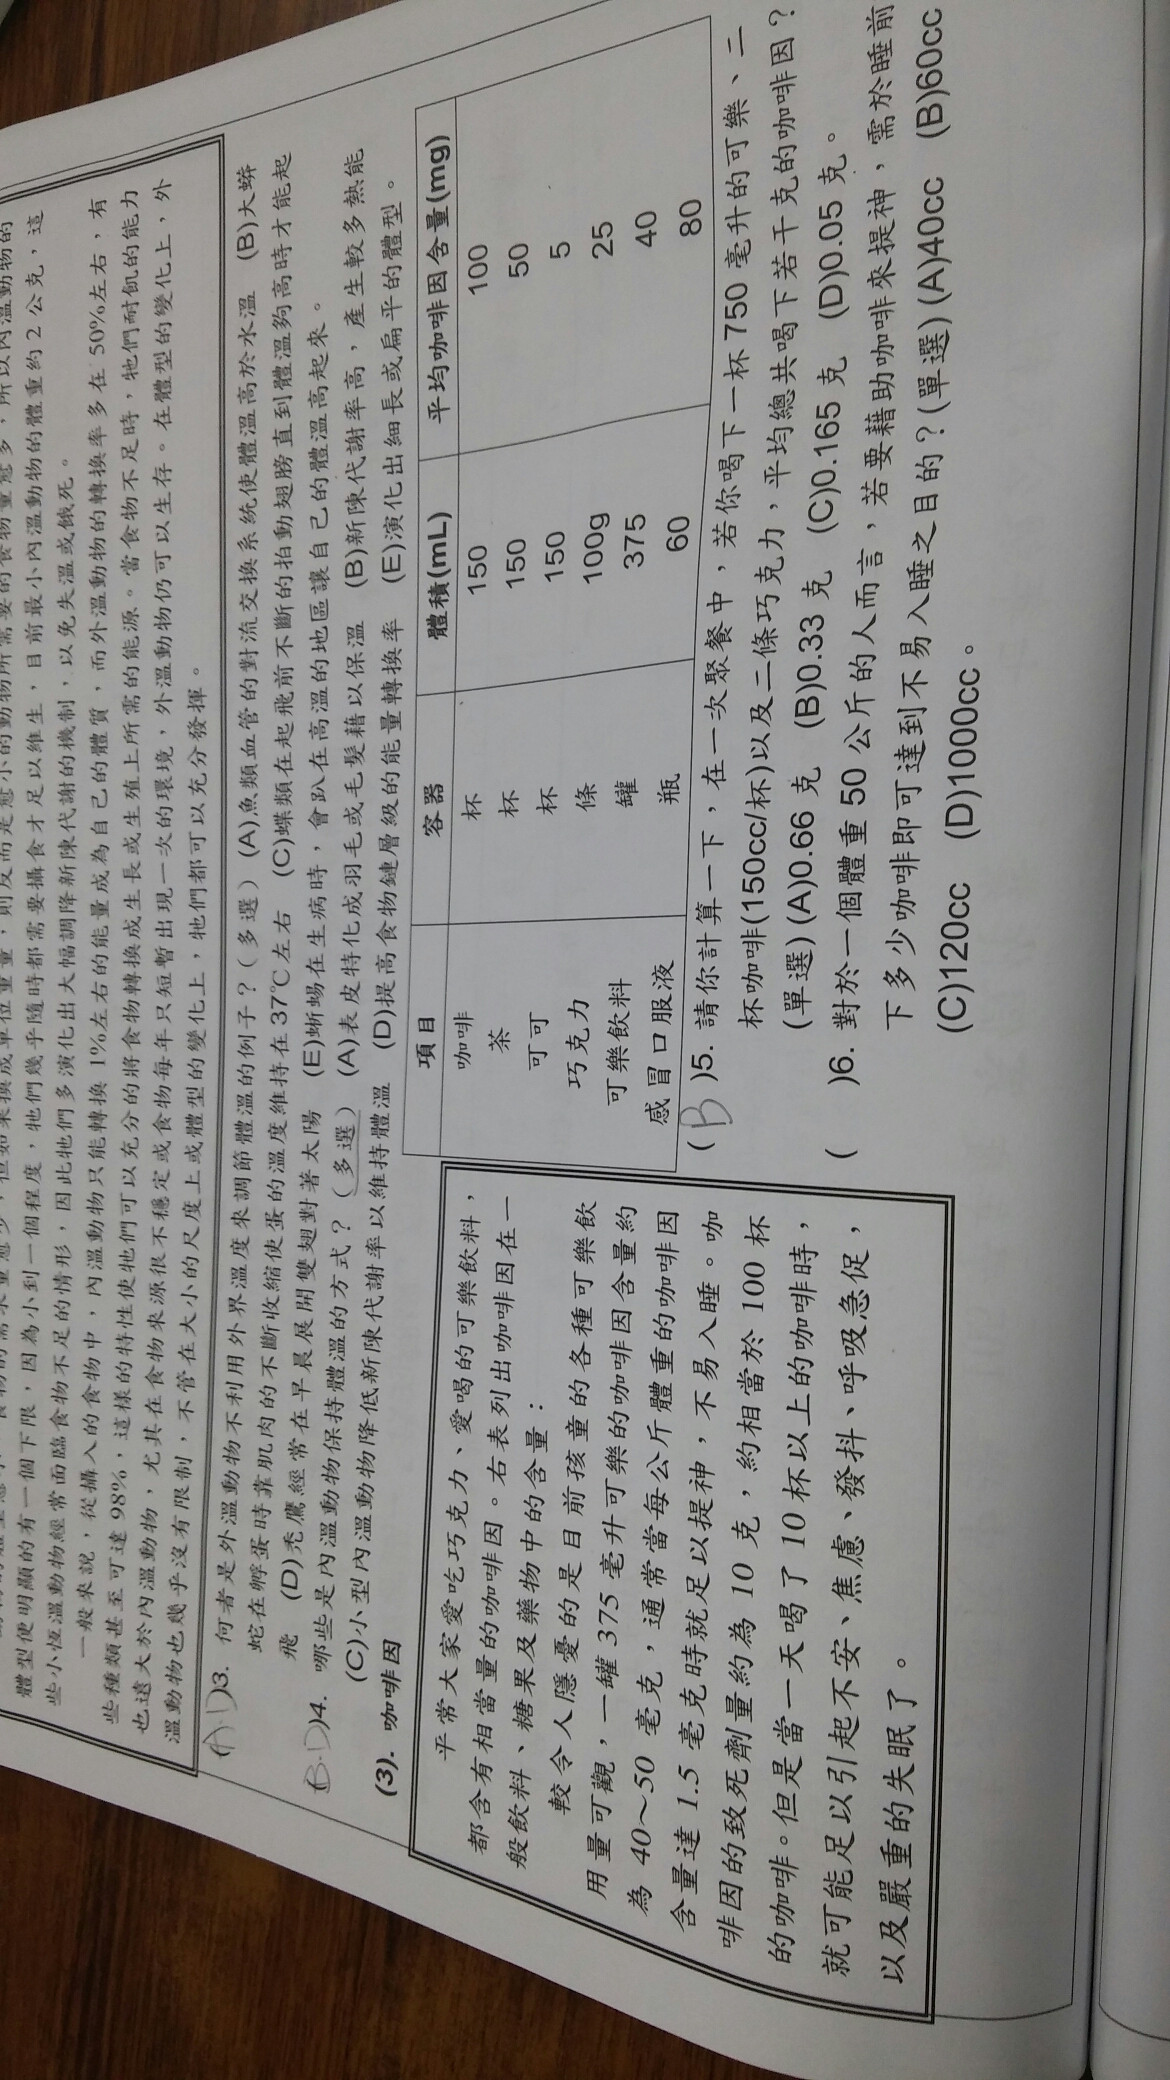 體型便明顯的有一個下限，因為小到一個程度，牠們幾乎隨時都需要攝食才足以維生，目前最小內溫動物的體重約2公克，這
些小恆溫動物經常面臨食物不足的情形，因此牠們多演化出大幅調降新陳代謝的機制，以免失溫或餓死。
一般來說，從攝入的食物中，內溫動物只能轉換1%左右的能量成為自己的體質，而外溫動物的轉換率多在50%左右，有
些種類甚至可達98%，這樣的特性使牠們可以充分的將食物轉換成生長或生殖上所需的能源。當食物不足時，牠們耐飢的能力
也遠大於內溫動物，尤其在食物來源很不穩定或食物每年只短暫出現一次的環境，外溫動物仍可以生存。在體型的變化上，外
溫動物也幾乎沒有限制，不管在大小的尺度上或體型的變化上，牠們都可以充分發揮。
(A D)3. 何者是外溫動物不利用外界溫度來調節體溫的例子？(多選) (A)魚類血管的對流交換系統使體溫高於水溫 (B)大蟒
蛇在孵蛋時靠肌肉的不斷收縮使蛋的溫度維持在37℃左右 (C)蝶類在起飛前不斷的拍動翅膀直到體溫夠高時才能起
飛 (D)禿鷹經常在早晨展開雙翅對著太陽 (E)蜥蜴在生病時，會趴在高溫的地區讓自己的體溫高起來。
(B.D)4. 哪些是內溫動物保持體溫的方式？(多選) (A)表皮特化成羽毛或毛髮藉以保溫 (B)新陳代謝率高，產生較多熱能
(C)小型內溫動物降低新陳代謝率以維持體溫 (D)提高食物鏈層級的能量轉換率 (E)演化出細長或扁平的體型。
(3). 咖啡因
平常大家愛吃巧克力、愛喝的可樂飲料，
都含有相當量的咖啡因。右表列出咖啡因在一
般飲料、糖果及藥物中的含量：
較令人隱憂的是目前孩童的各種可樂飲
用量可觀，一罐375毫升可樂的咖啡因含量約
為40～50毫克，通常當每公斤體重的咖啡因
含量達1.5毫克時就足以提神，不易入睡。咖
啡因的致死劑量約為10克，約相當於100杯
的咖啡。但是當一天喝了10杯以上的咖啡時，
就可能足以引起不安、焦慮、發抖、呼吸急促，
以及嚴重的失眠了。
項目 容器 體積(mL) 平均咖啡因含量(mg)
咖啡 杯 150 100
茶 杯 150 50
可可 杯 150 5
巧克力 條 100g 25
可樂飲料 罐 375 40
感冒口服液 瓶 60 80
(B)5. 請你計算一下，在一次聚餐中，若你喝下一杯750毫升的可樂、二
杯咖啡(150cc/杯)以及二條巧克力，平均總共喝下若干克的咖啡因？
(單選)(A)0.66克 (B)0.33克 (C)0.165克 (D)0.05克。
( )6. 對於一個體重50公斤的人而言，若要藉助咖啡來提神，需於睡前
下多少咖啡即可達到不易入睡之目的？(單選)(A)40cc (B)60cc
(C)120cc (D)1000cc。